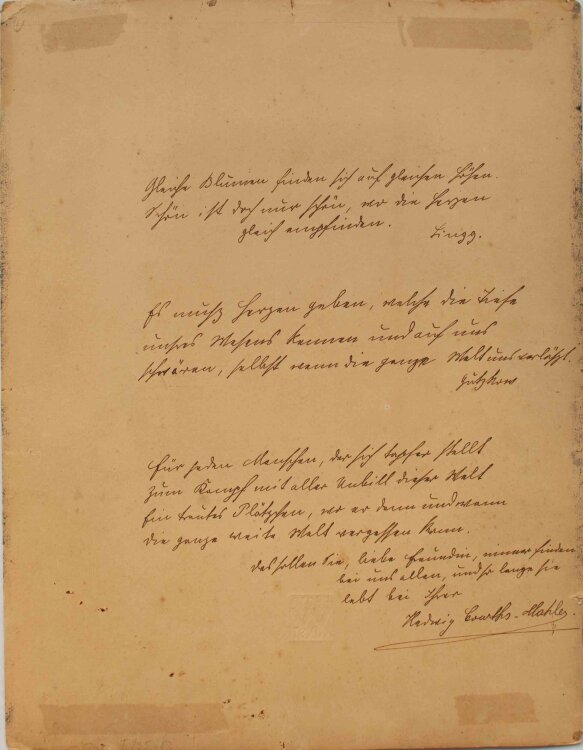 Gleiche Blumen finden sich auf gleichen Höhen.
Schön ist doch nur schön, wo die Herzen
gleich empfinden.
Lingg.
Es muß Herzen geben, welche die Tiefe
unsres Wesens kennen und auf uns
schwören, selbst wenn die ganze Welt uns verläßt.
Gutzkow
Für jeden Menschen, der sich tapfer stellt
zum Kampf mit aller Unbill dieser Welt
Ein trautes Plätzchen, wo er dann und wann
die ganze weite Welt vergessen kann.
Das sollen Sie, liebe Freundin, immer finden
bei uns allen, und so lange sie
lebt bei Ihrer
Hedwig Courths-Mahler.